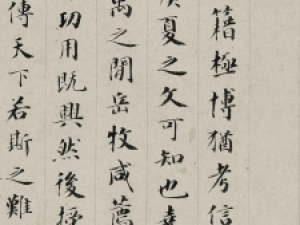 籍極博猶考信
虞夏之文可知也堯
禹之間岳牧咸薦
功用既興然後授
傳天下若斯之難